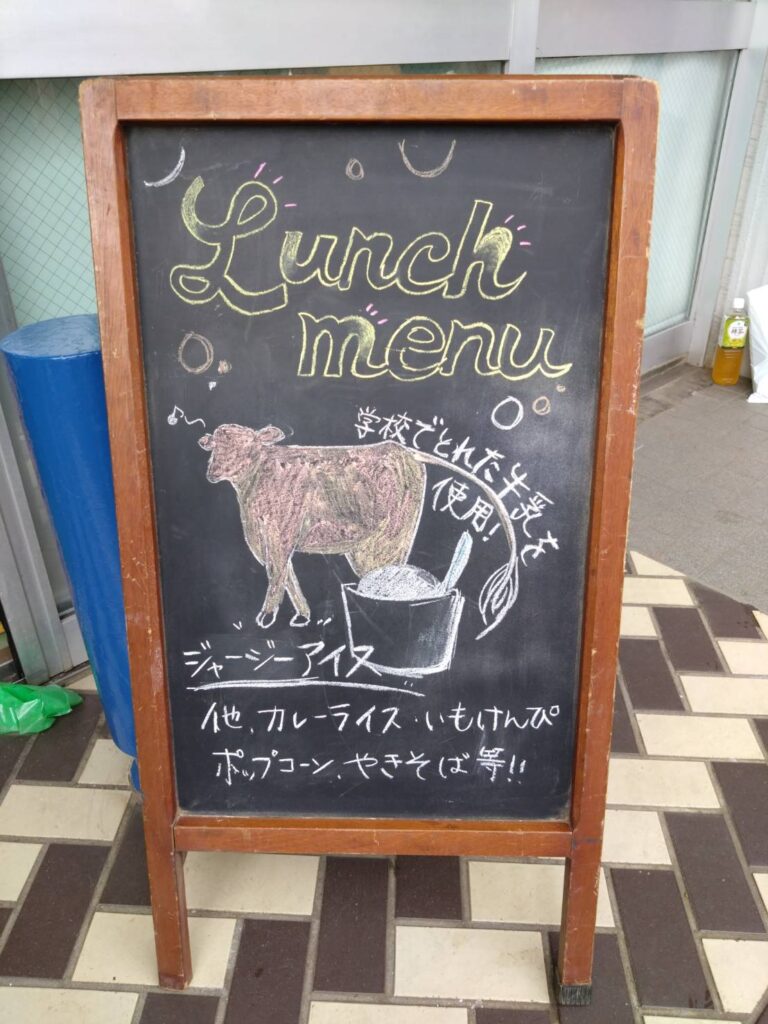 Lunch
menu
学校でとれた牛乳を
使用!
ジャージーアイス
他、カレーライス・いもけんぴ
ポップコーン、やきそば等!!